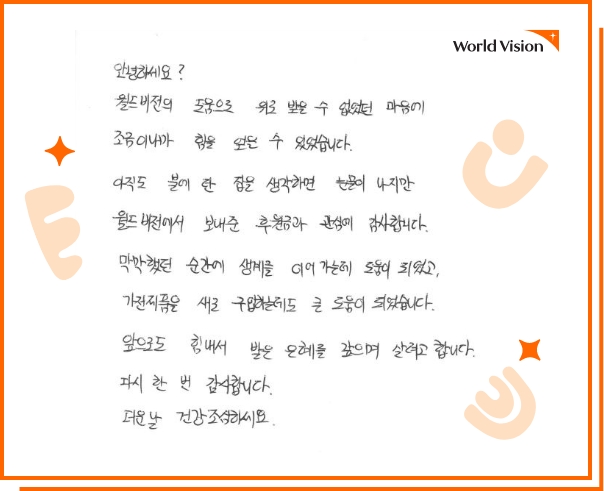 World Vision
안녕하세요?
월드비전의 도움으로 위로 받을 수 없었던 마음에
조금이나마 힘을 얻을 수 있었습니다.
아직도 불에 탄 집을 생각하면 눈물이 나지만
월드비전에서 보내준 후원금과 관심에 감사합니다.
막막했던 순간에 생계를 이어가는데 도움이 되었고,
가전제품을 새로 구입하는데도 큰 도움이 되었습니다.
앞으로도 힘내서 받은 은혜를 갚으며 살려고 합니다.
다시 한 번 감사합니다.
더운날 건강조심하세요.